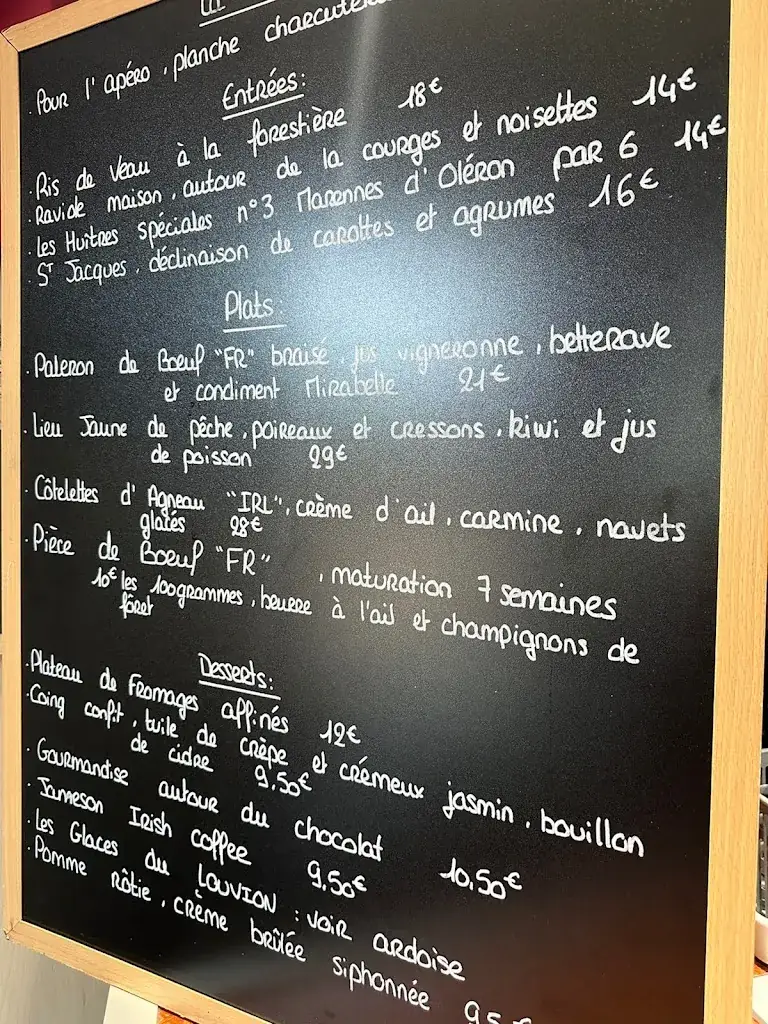 Pour l'apéro, planche charcuterie
Entrées:
. Ris de Veau à la forestière 18€
. Raviole maison, autour de la courges et noisettes 14€
. Les Huîtres spéciales n°3 Marennes d'Oléron par 6 14€
. St Jacques, déclinaison de carottes et agrumes 16€
Plats:
. Paleron de Boeuf "FR" braisé jus vigneronne, betterave
et condiment Mirabelle 21€
. Lieu Jaune de pêche, poireaux et cressons, kiwi et jus
de poisson 29€
. Côtelettes d'Agneau "IRL", crème d'ail, carmine, navets
glacés 28€
. Pièce de Boeuf "FR" , maturation 7 semaines
10€ les 100grammes, beurre à l'ail et champignons de
fôret
Desserts:
. Plateau de Fromages affinés 12€
. Coing confit, tuile de crêpe et crémeux jasmin, bouillon
de cidre 9.50€
. Gourmandise autour du chocolat 10,50€
. Jameson Irish coffee 9,50€
. Les Glaces du LOUVION : voir ardoise
. Pomme Rôtie, crème brûlée siphonnée